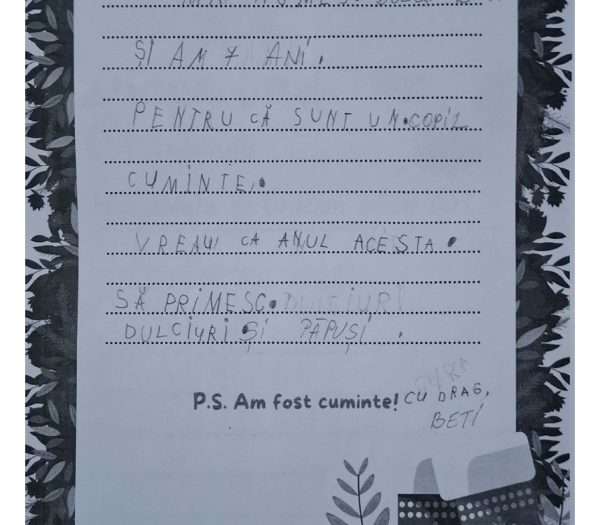 ȘI AM 7 ANI.
PENTRU CĂ SUNT UN COPIL
CUMINTE.
VREAU CA ANUL ACESTA
SĂ PRIMESC DULCIURI
DULCIURI ȘI PĂPUȘI.
P.S. Am fost cuminte! CU DRAG,
BETI